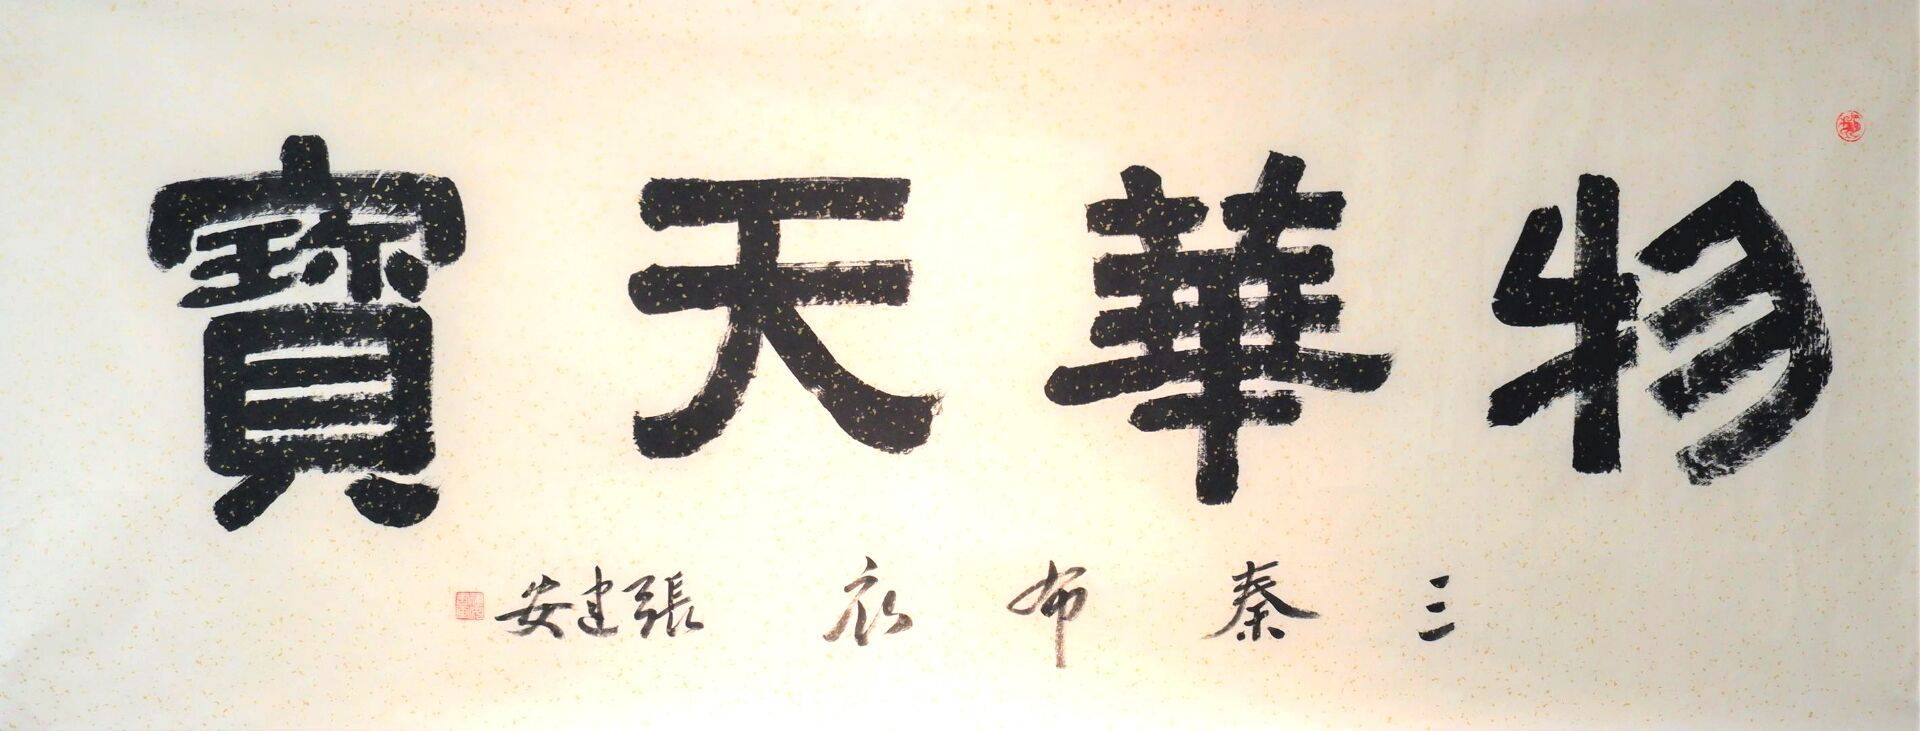 物華天寳
三秦布衣張建安